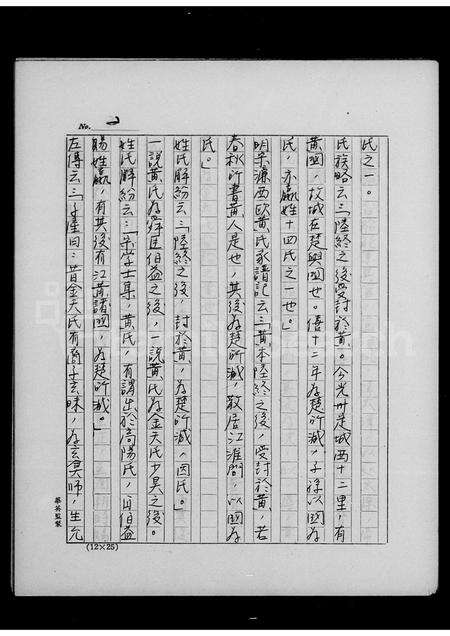 No. 2
氏之一。
氏族略云:「陸終之後受封於黃。今光州定城西十二里,有
黃國,故城在楚與國也。僖十二年為楚所滅,子孫以國為
氏,亦嬴姓十四氏之一也。」
明宋濂西歐黃氏家譜記云:「黃本陸終之後,受封於黃,若
春秋所書黃人是也,其後為楚所滅,散居江淮間,以國為
氏。」
姓氏辯紛云:「陸終之後,封於黃,為楚所滅,因氏。」
一說黃氏為舜臣伯益之後,一說黃氏為金天氏少昊之後。
姓氏辯紛云:「宋學士集,黃氏,有謂出於高陽氏,自伯益
賜姓嬴,有其後有江黃諸國,為楚所滅。」
左傳云:「子產曰:昔金天氏有裔子玄昧,為玄冥師,生允
(12×25)